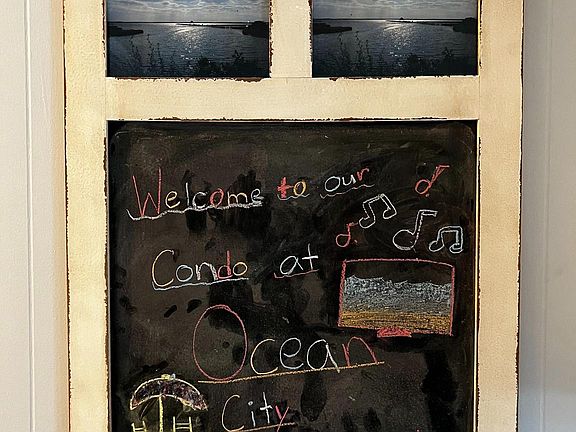 Welcome to our
Condo at
Ocean
City